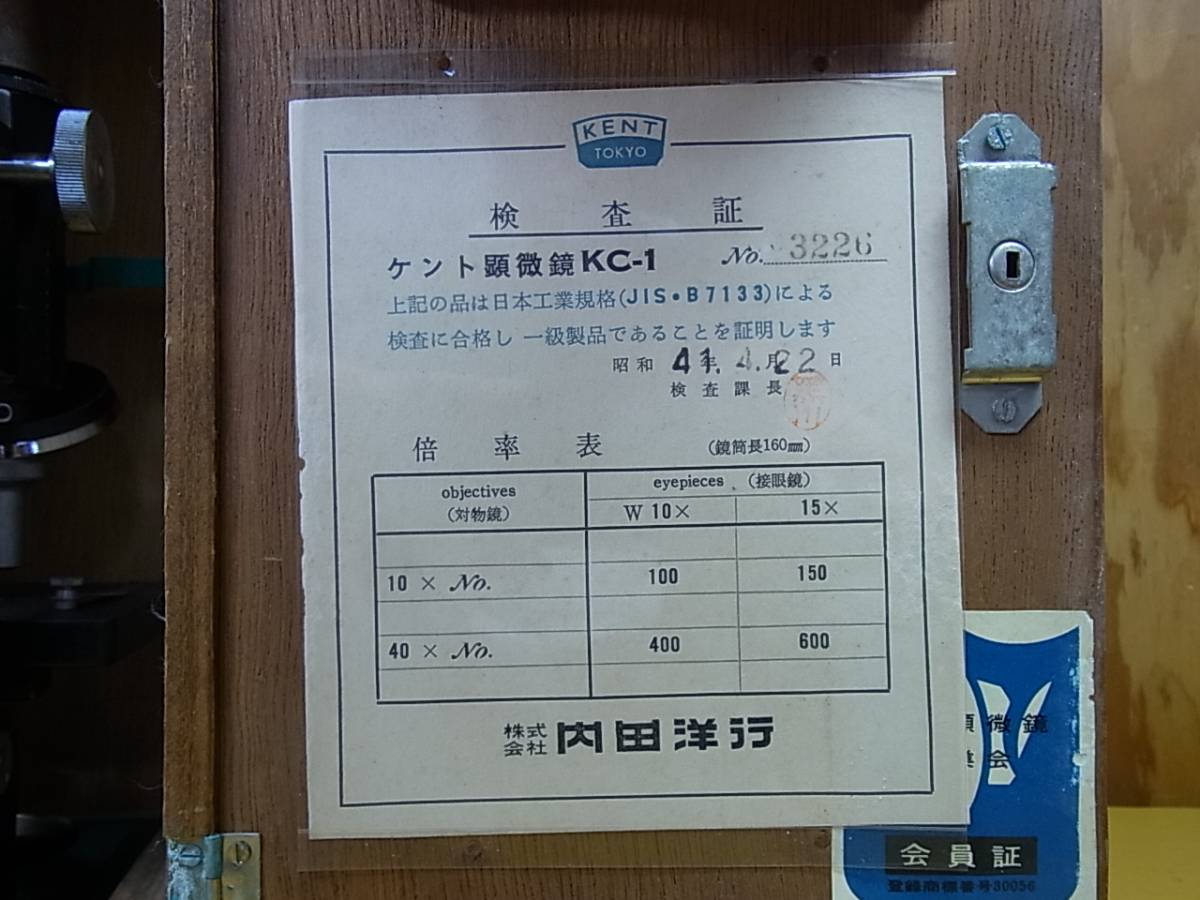 KENT
TOKYO
検査証
ケント顕微鏡KC-1 No. 3226
上記の品は日本工業規格(JIS・B7133)による
検査に合格し 一級製品であることを証明します
昭和 41年 4月22日
検査課長
倍率表 (鏡筒長160㎜)
objectives
(対物鏡)
eyepieces (接眼鏡)
W 10× 15×
10 × No. 100 150
40 × No. 400 600
株式会社 内田洋行
微鏡
会
会員証
登録商標番号30056